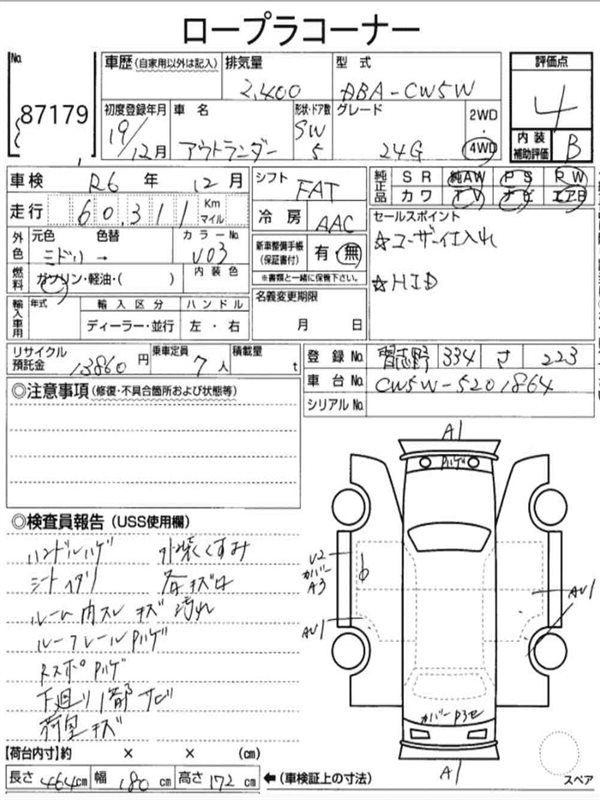 ロープラコーナー
No.
87179
車歴 (自家用以外は記入)
排気量
2,400
型式
DBA-CW5W
評価点
4
内装
補助評価
B
初度登録年月
19/12月
車名
アウトランダー
形状・ドア数
SW
5
グレード
24G
2WD
・
4WD
車検 R6年 12月
走行 60,311 Km マイル
外色
元色 色替
ミドリ →
カラーNo.
V03
燃料
ガソリン・軽油・( )
内装色
輸入車用
年式
輸入区分
ハンドル
ディーラー・並行
左・右
シフト
FAT
冷房
AAC
新車整備手帳
(保証書付)
有・無
※書類と一緒に保管下さい。
名義変更期限
月 日
純正品
SR 純AW PS RW
カワ TV ナビ エアB
セールスポイント
☆ユーザー仕入れ
☆HID
リサイクル
預託金
13860円
乗車定員
7人
積載量
t
登録No. 習志野 334 さ 223
車台No. CW5W-5201864
シリアルNo.
◎注意事項 (修復・不具合箇所および状態等)
◎検査員報告 (USS使用欄)
ハンドルハゲ 外装くすみ
シートイタリ 各キズ
ルーム内スレ キズ 汚れ
ルーフレールPハゲ
RスポPハゲ
下廻り1部サビ
荷室キズ
A1
Pハゲ
U2
カバー
A3
AU1
AU1
カバーP3セ
A1
スペア
【荷台内寸】約 × × (cm)
長さ 464cm 幅 180cm 高さ 172cm ←(車検証上の寸法)